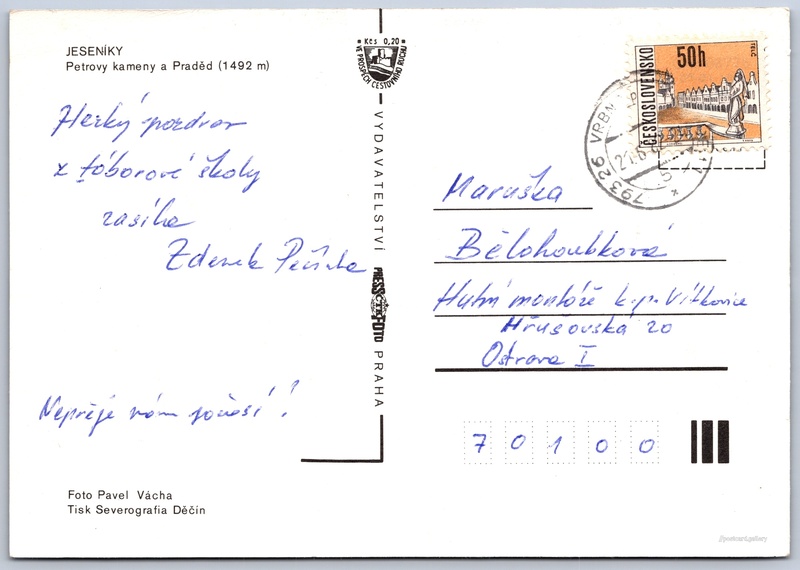 JESENÍKY
Petrovy kameny a Praděd (1492 m)
Hezký pozdrav
z táborové školy
zasílá
Zdenek
Nepřeje nám počasí!
Foto Pavel Vácha
Tisk Severografia Děčín
Kčs 0,20
VE PROSPĚCH CESTOVNÍHO RUCHU
VYDAVATELSTVÍ PRESSFOTO PRAHA
ČESKOSLOVENSKO
50h
TELČ
793 26 VRBNO
Maruška
Bělohoubková
Hutní montáže k.p. Vítkovice
Hrušovská 20
Ostrava I
70100